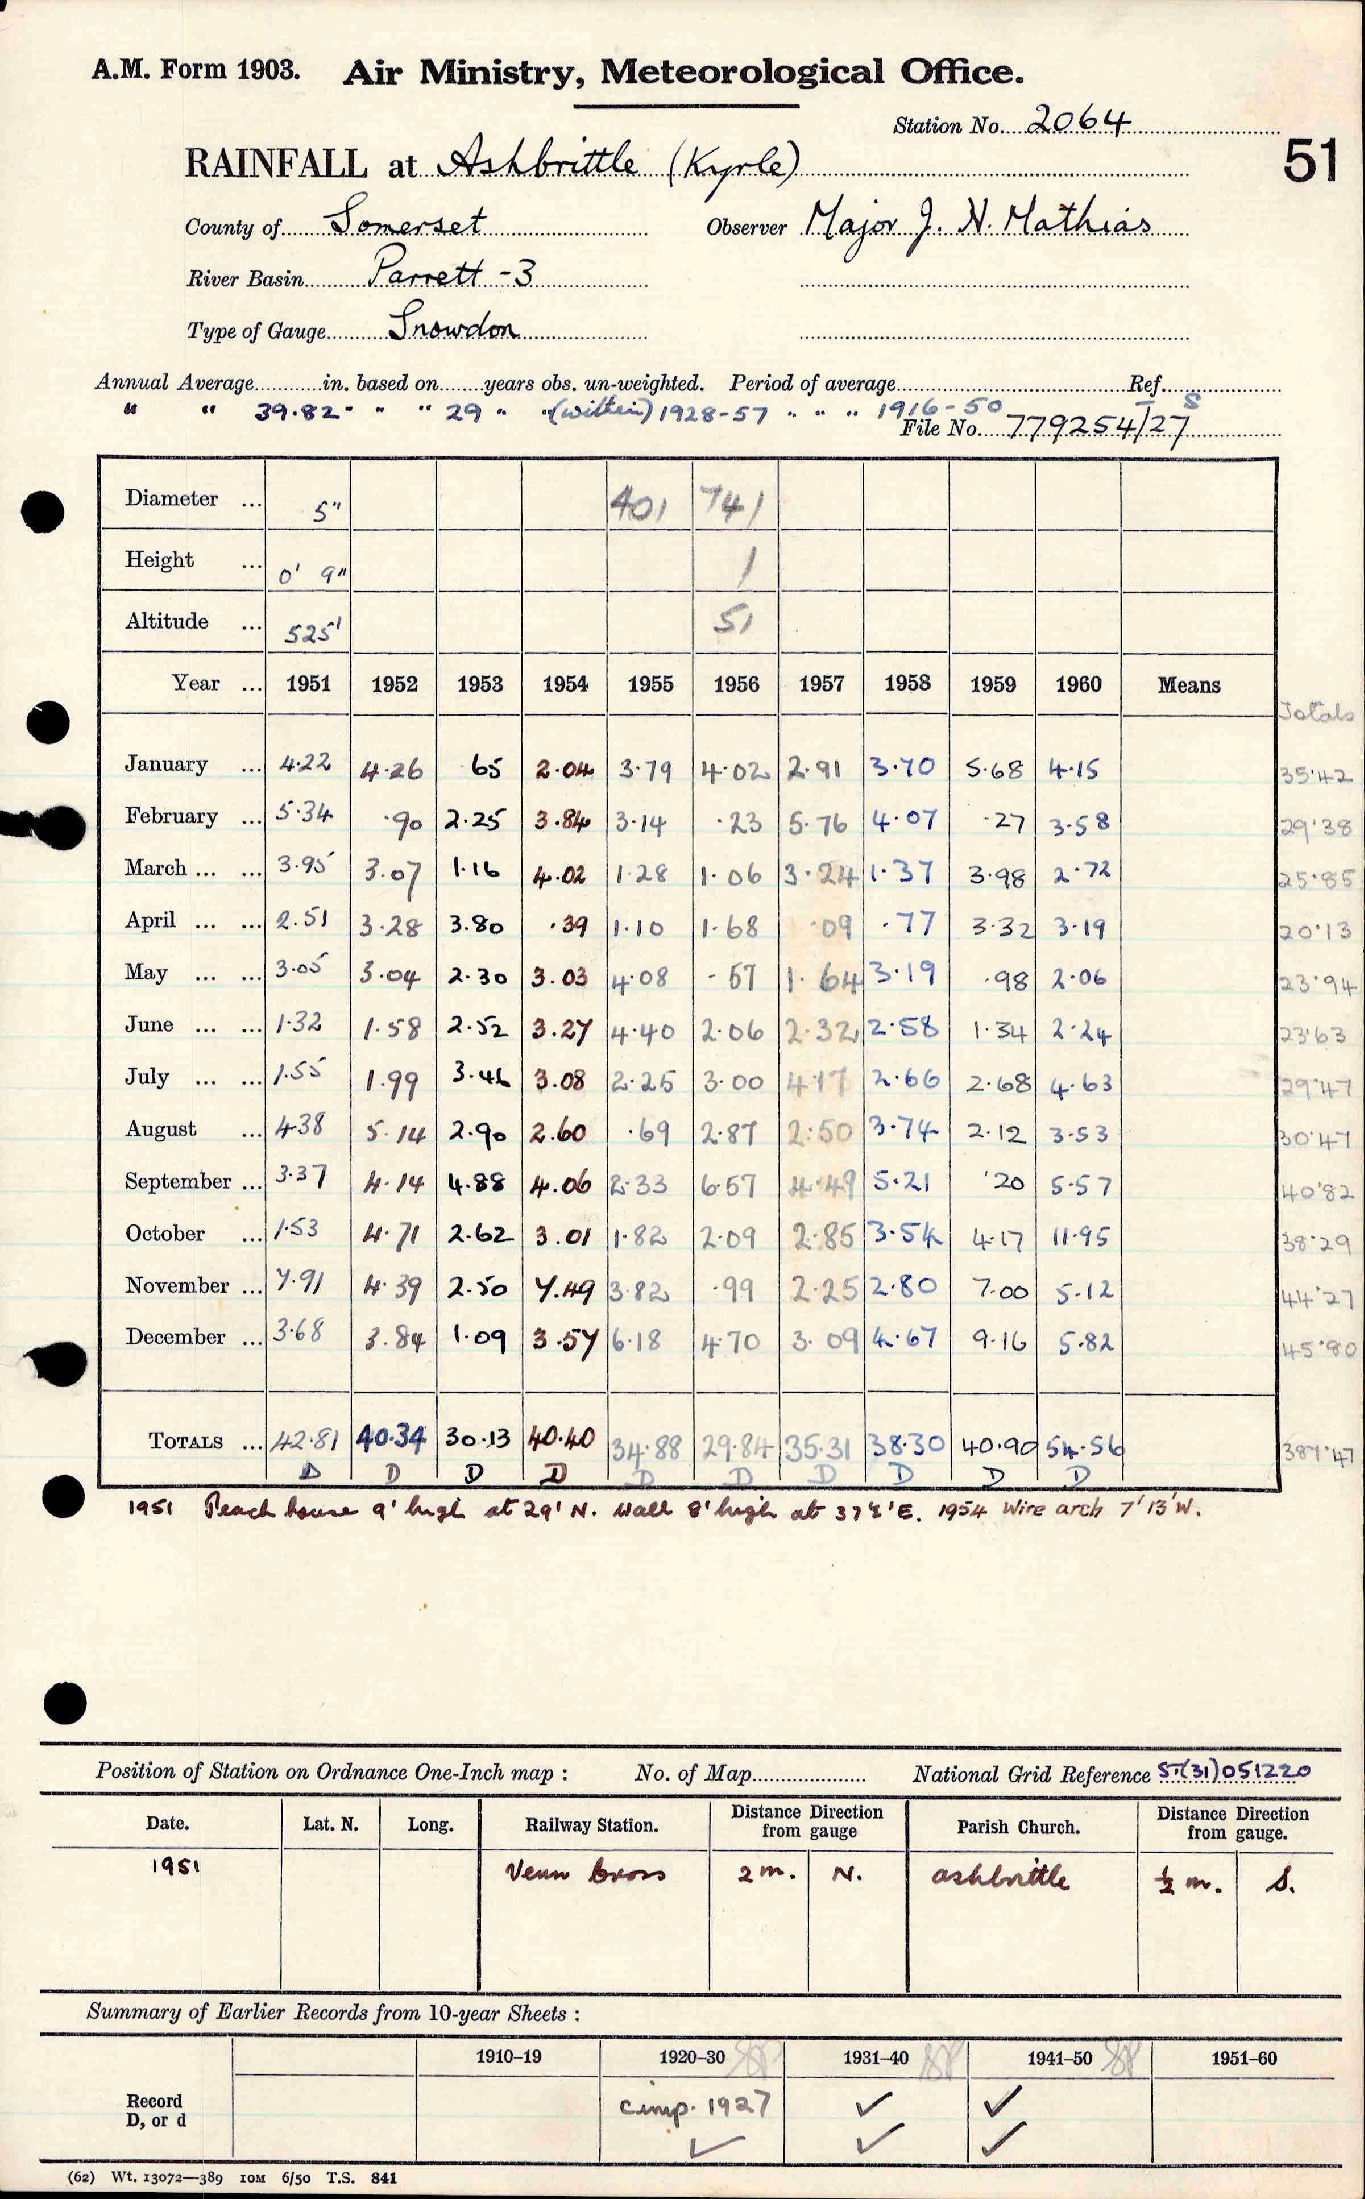 A.M. Form 1903. Air Ministry, Meteorological Office.
Station No. 2064
51
RAINFALL at Ashbrittle (Kyrle)
County of Somerset Observer Major J. H. Mathias
River Basin Parrett - 3
Type of Gauge Snowdon
Annual Average in. based on years obs. un-weighted. Period of average Ref.
" " 39.82 " " 29 " " 1928-57 " " " 1916-50 I S
File No. 779254/27
Diameter ... 5" 401 741
Height ... 0' 9" 1
Altitude ... 525' 51
Year ... 1951 1952 1953 1954 1955 1956 1957 1958 1959 1960 Means Totals
January ... 4.22 4.26 .65 2.04 3.79 4.02 2.91 3.70 5.68 4.15 35.42
February ... 5.34 .90 2.25 3.84 3.14 .23 5.76 4.07 .27 3.58 29.38
March ... ... 3.95 3.07 1.16 4.02 1.28 1.06 3.24 1.37 3.98 2.72 25.85
April ... ... 2.51 3.28 3.80 .39 1.10 1.68 .09 .77 3.32 3.19 20.13
May ... ... 3.05 3.04 2.30 3.03 4.08 .57 1.64 3.19 .98 2.06 23.94
June ... ... 1.32 1.58 2.52 3.27 4.40 2.06 2.32 2.58 1.34 2.24 23.63
July ... ... 1.55 1.99 3.46 3.08 2.25 3.00 4.17 2.66 2.68 4.63 29.47
August ... 4.38 5.14 2.90 2.60 .69 2.87 2.50 3.74 2.12 3.53 30.47
September ... 3.37 4.14 4.88 4.06 2.33 6.57 4.49 5.21 .20 5.57 40.82
October ... 1.53 4.71 2.62 3.01 1.82 2.09 2.85 3.54 4.17 11.95 38.29
November ... 7.91 4.39 2.50 7.49 3.82 .99 2.25 2.80 7.00 5.12 44.27
December ... 3.68 3.84 1.09 3.57 6.18 4.70 3.09 4.67 9.16 5.82 45.80
TOTALS ... 42.81 40.34 30.13 40.40 34.88 29.84 35.31 38.30 40.90 54.56 387.47
D D D D D D D D D D
1951 Peach house 9' high at 29' N. Wall 8' high at 37½' E. 1954 Wire arch 7' 13' W.
Position of Station on Ordnance One-Inch map : No. of Map National Grid Reference ST(31)051220
Date. Lat. N. Long. Railway Station. Distance Direction from gauge Parish Church. Distance Direction from gauge.
1951 Venn Cross 2 m. N. Ashbrittle ½ m. S.
Summary of Earlier Records from 10-year Sheets :
1910–19 1920–30 1931–40 1941–50 1951–60
Record D, or d cinp. 1927 ✓ ✓
✓ ✓ ✓
(62) Wt. 13072—389 10M 6/50 T.S. 841